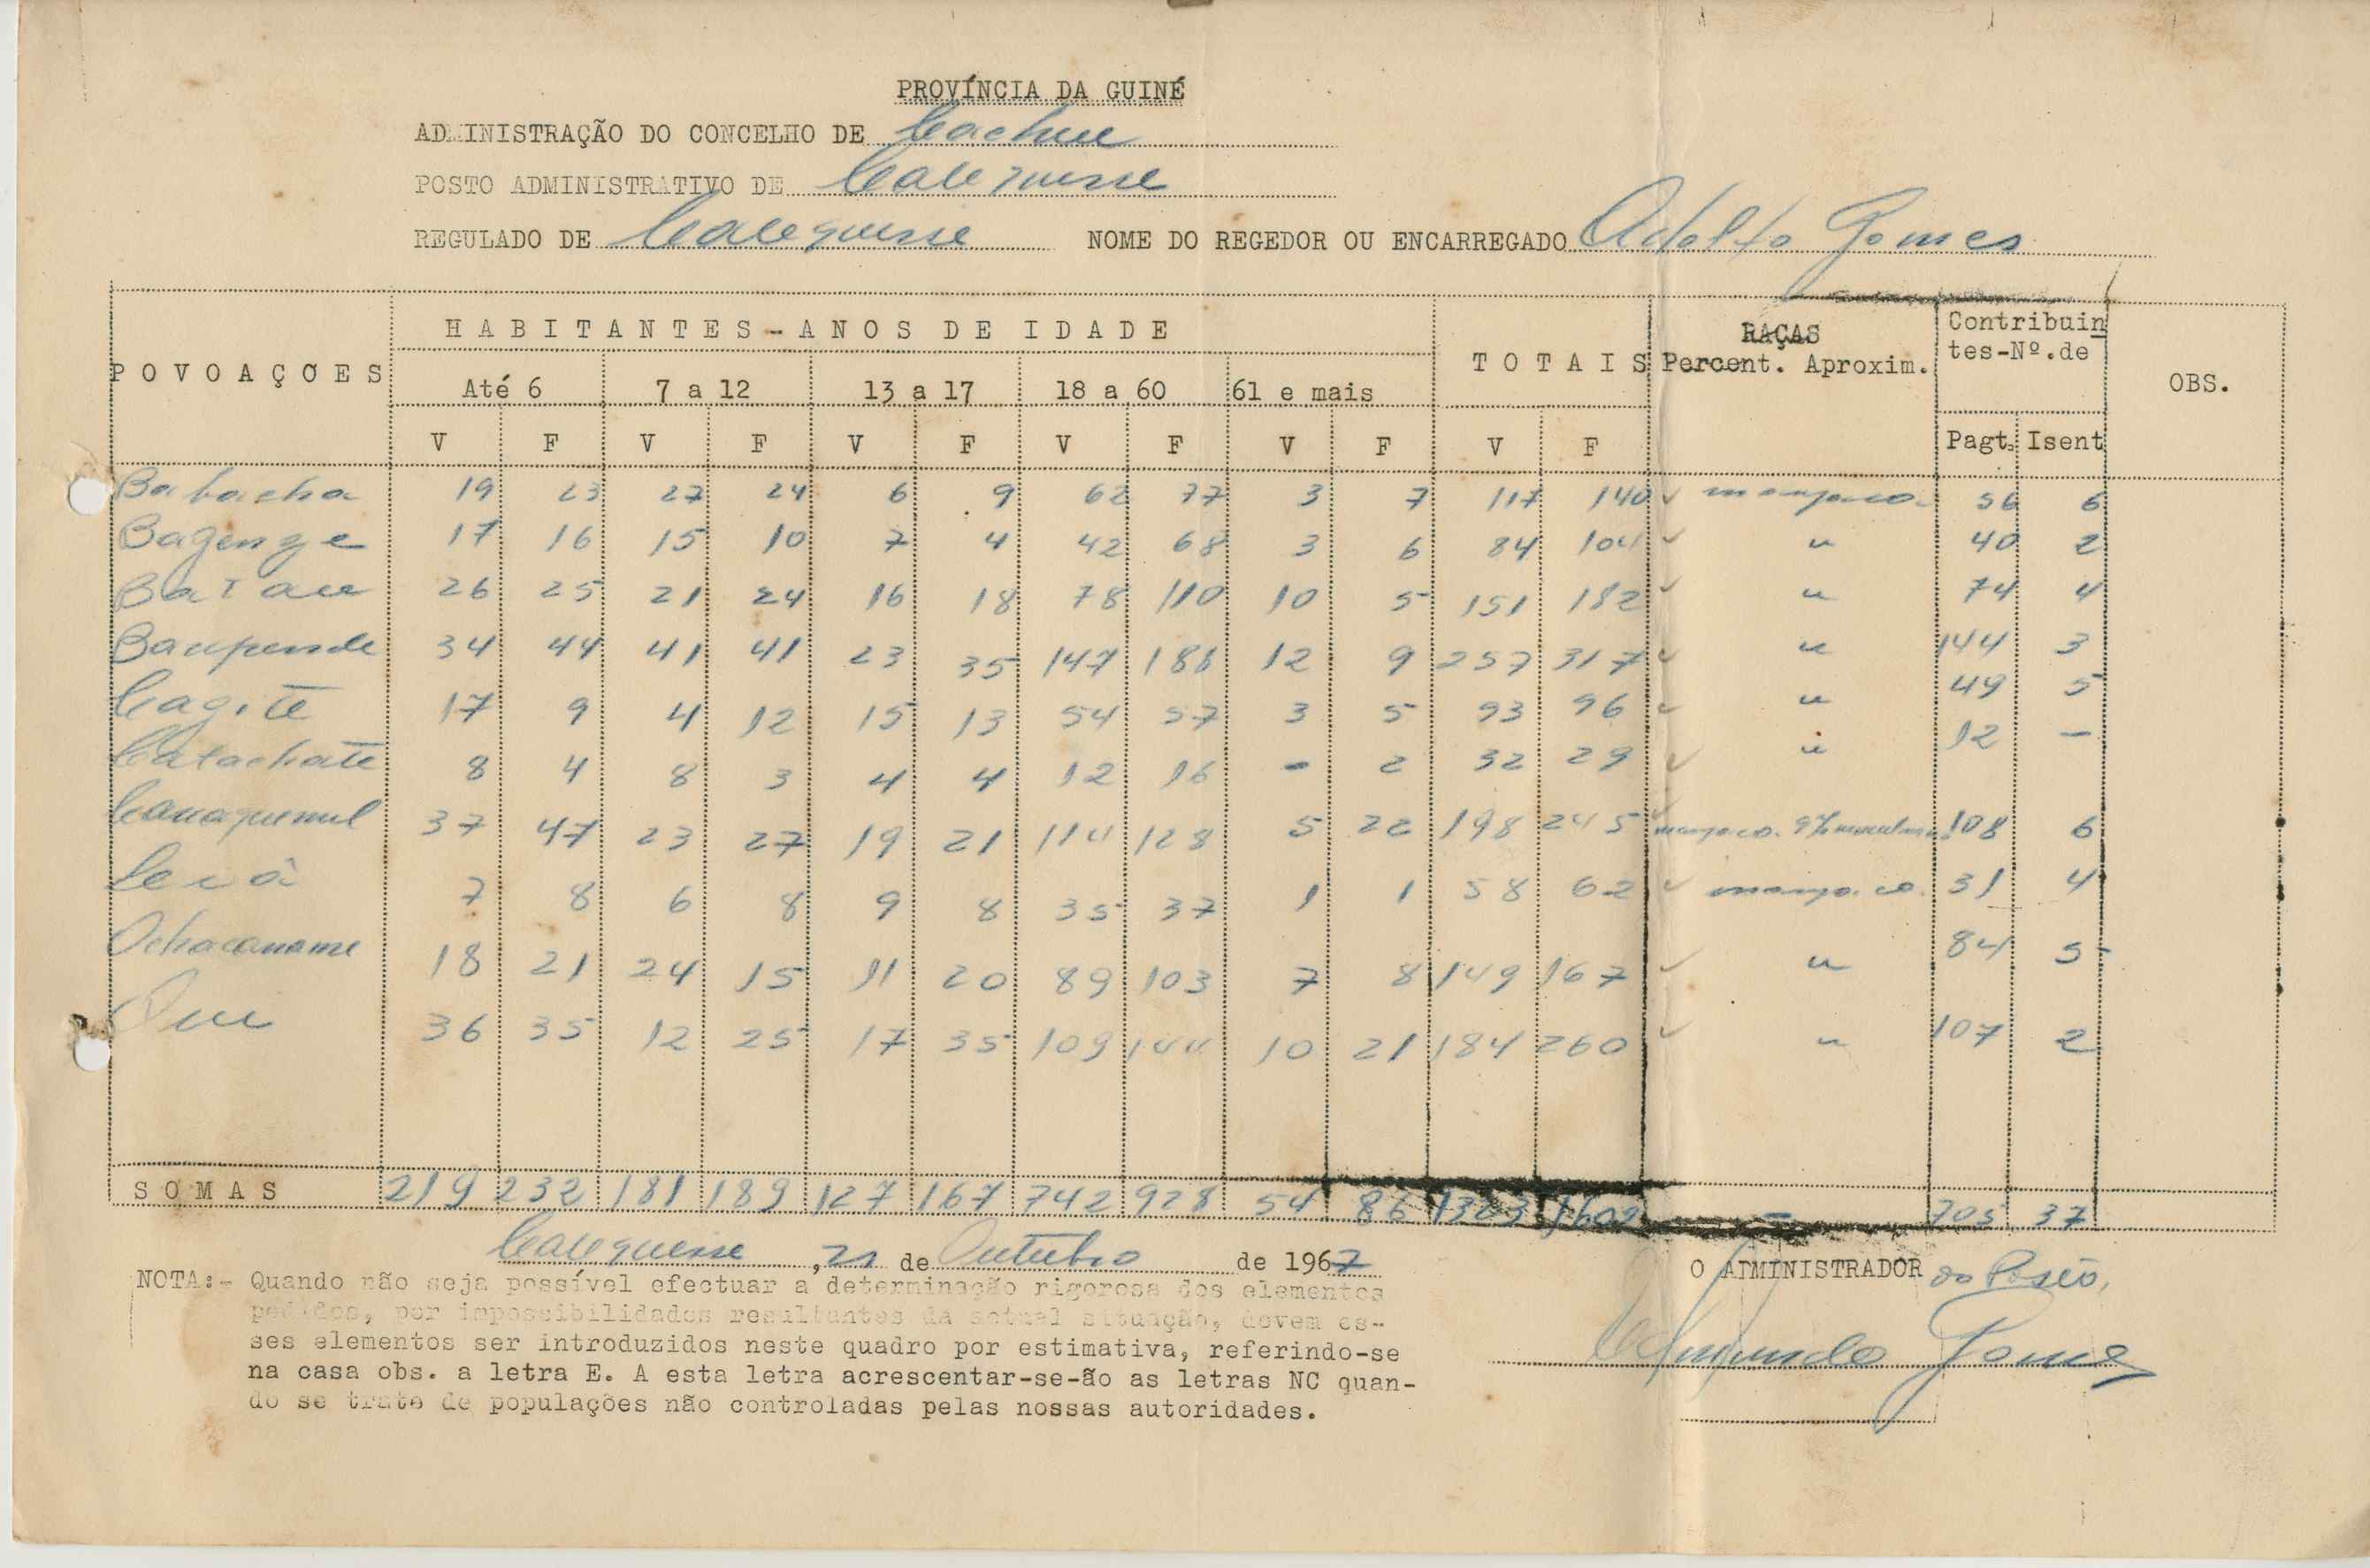 PROVÍNCIA DA GUINÉ
ADMINISTRAÇÃO DO CONCELHO DE Cacheu
POSTO ADMINISTRATIVO DE Calequisse
REGULADO DE Calequisse NOME DO REGEDOR OU ENCARREGADO Adolfo Gomes
POVOAÇOES HABITANTES-ANOS DE IDADE TOTAIS RAÇAS Percent. Aproxim. Contribuin tes-Nº.de OBS.
Até 6 7 a 12 13 a 17 18 a 60 61 e mais
V F V F V F V F V F V F Pagt. Isent
Babacha 19 23 27 24 6 9 62 77 3 7 117 140 manjaco. 56 6
Bagenze 17 16 15 10 7 4 42 68 3 6 84 104 " 40 2
26 25 21 24 16 18 78 110 10 5 151 182 " 74 4
34 44 41 41 23 35 147 188 12 9 257 317 " 144 3
Cagite 17 9 4 12 15 13 54 57 3 5 93 96 " 49 5
Catachate 8 4 8 3 4 4 12 16 - 2 32 29 " 12 -
37 47 23 27 19 21 114 128 5 22 198 245 manjaco. 108 6
7 8 6 8 9 8 35 37 1 1 58 62 manjaco. 31 4
Ochacaname 18 21 24 15 11 20 89 103 7 8 149 167 " 84 5
36 35 12 25 17 35 109 144 10 21 184 260 " 107 2
SOMAS 219 232 181 189 127 167 742 928 54 86 1323 1602 - 705 37
Calequisse, 21 de Outubro de 1967
O ADMINISTRADOR do Posto,
NOTA:- Quando não seja possível efectuar a determinação rigorosa dos elementos
pedidos, por impossibilidades resultantes da actual situação, devem es-
ses elementos ser introduzidos neste quadro por estimativa, referindo-se
na casa obs. a letra E. A esta letra acrescentar-se-ão as letras NC quan-
do se trate de populações não controladas pelas nossas autoridades.